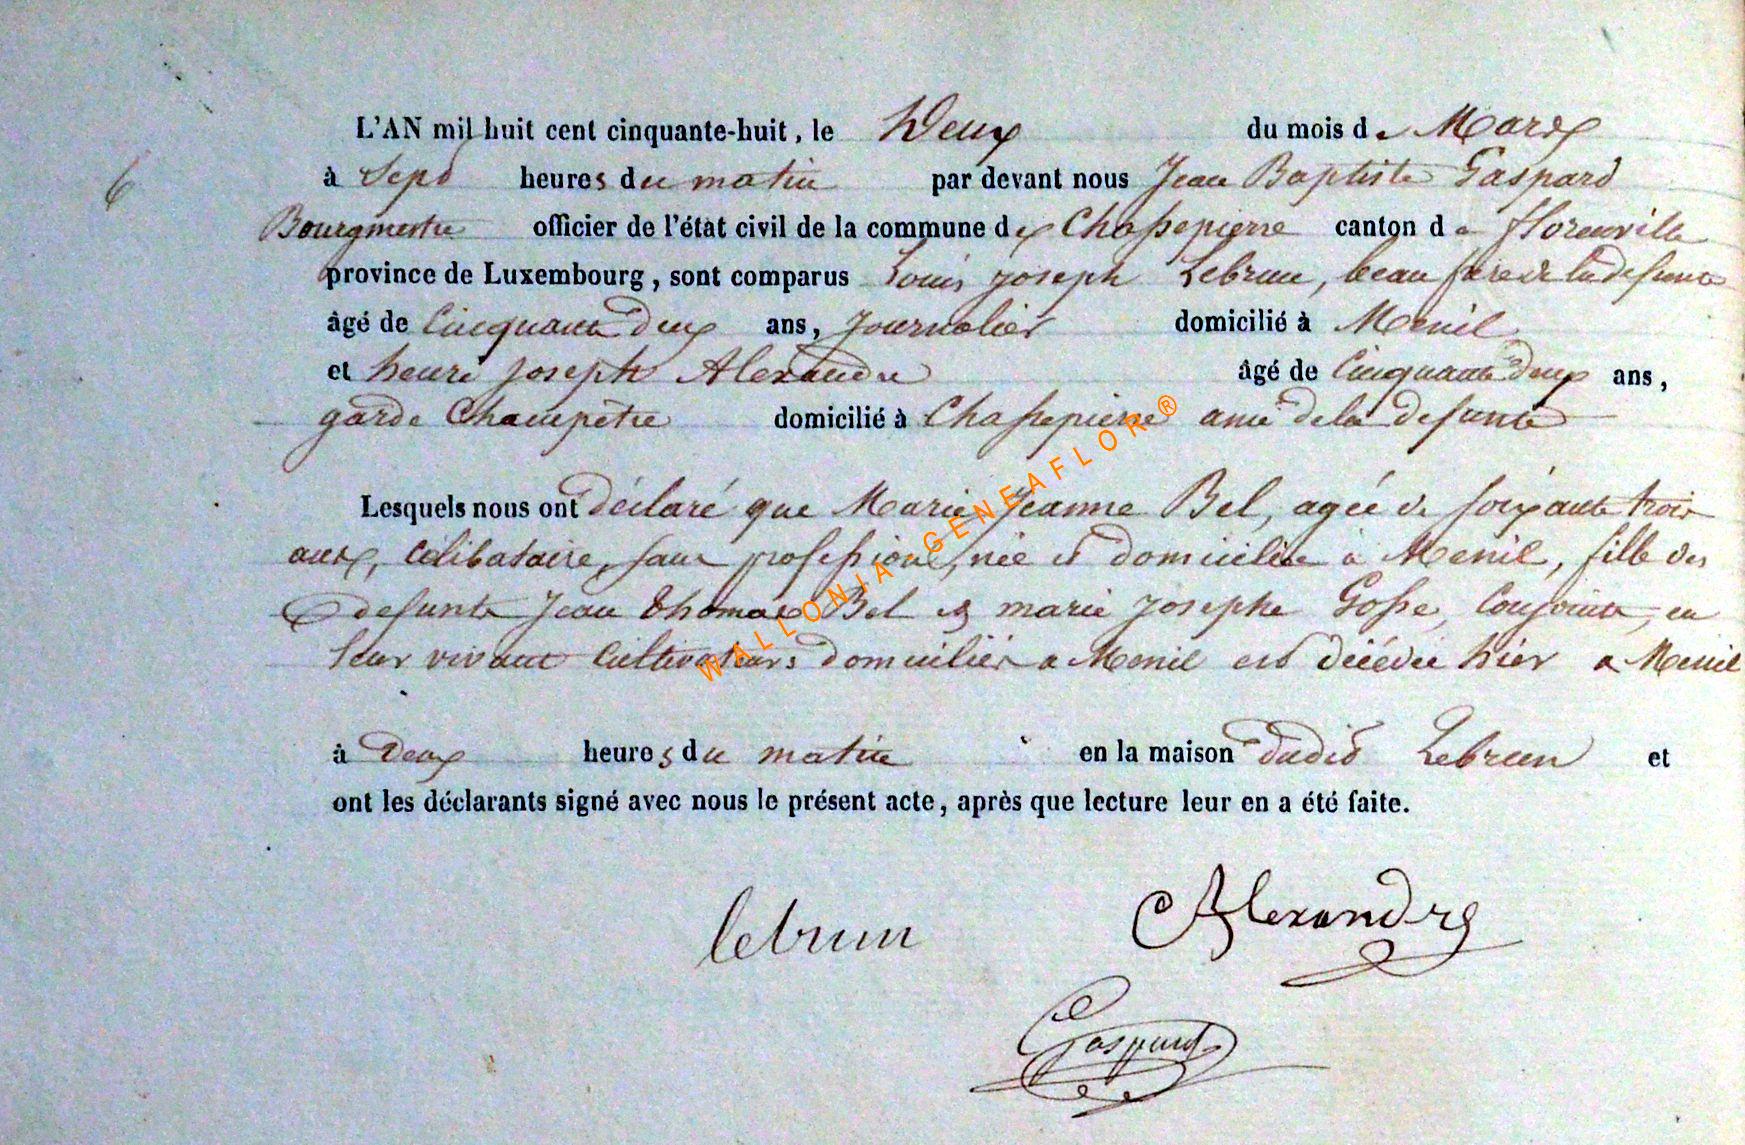 L'AN mil huit cent cinquante-huit, le Deux du mois de Mars
6
à Sept heures du matin par devant nous Jean Baptiste Gaspard
Bourgmestre officier de l'état civil de la commune de Chassepierre canton de florenville
province de Luxembourg, sont comparus Louis joseph Lebrun, beau frere de la defunte
âgé de Cinquante deux ans, journalier domicilié à Menil
et henri joseph Alexandre âgé de Cinquante deux ans,
garde Champêtre domicilié à Chassepierre ami de la defunte
Lesquels nous ont déclaré que Marie Jeanne Bel, agée de soixante trois
ans, célibataire, sans profession, née et domiciliée à Menil, fille des
defunts Jean thomas Bel et marie josephe Gosse, Conjoints, en
leur vivant Cultivateurs domiciliés a Menil est décédée hier a Menil
à Deux heures du matin en la maison dudit Lebrun et
ont les déclarants signé avec nous le présent acte, après que lecture leur en a été faite.
lebrun Alexandre
Gaspard
WALLONIA-GENEAFLOR ®